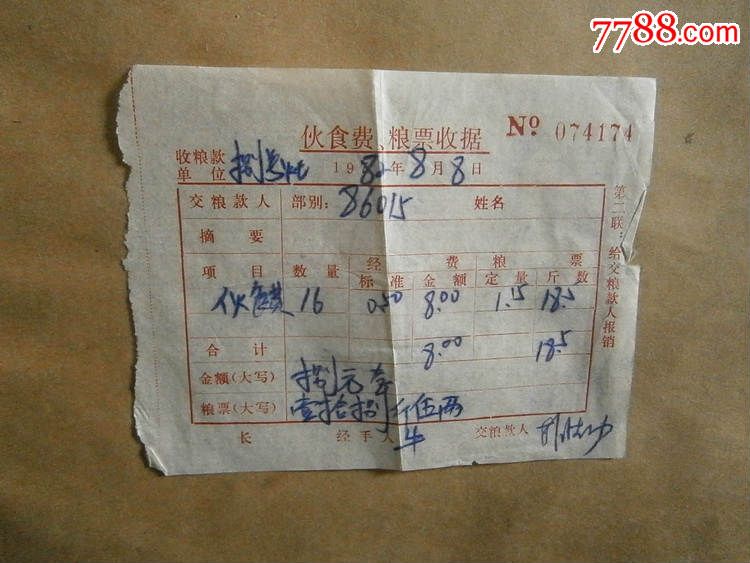 7788.com
伙食费、粮票收据 Nº 074174
收粮款单位 捌号灶 1982年8月8日
交粮款人 部别: 86015 姓名
摘要
项目 数量 经费 粮票
标准 金额 定量 斤数
伙食费 16 0.50 8.00 1.15 18.5
合计 8.00 18.5
金额(大写) 捌元整
粮票(大写) 壹拾捌斤伍两
长 经手人 交粮款人
第二联：给交粮款人报销